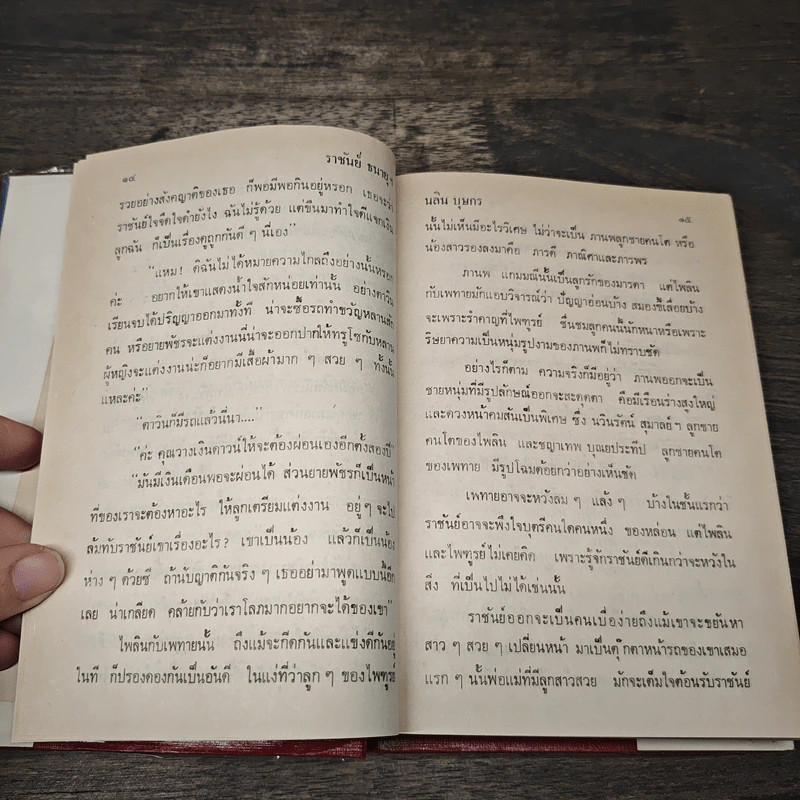 ๑๔
ราชันย์ ธนายุ ฯ
รวยอย่างสังคญาติของเธอ ก็พอมีพอกินอยู่หรอก เธอจะว่า
ราชันย์ใจจืดใจดำยังไง ฉันไม่รู้ด้วย แต่ขืนมาทำใจดีแจกเงิน
ลูกฉัน ก็เป็นเรื่องดูถูกกันดี ๆ นี่เอง”
“แหม! ดิฉันไม่ได้หมายความไกลถึงอย่างนั้นหรอก
ค่ะ อยากให้เขาแสดงน้ำใจสักหน่อยเท่านั้น อย่างตาวิน
เรียนจบได้ปริญญาออกมาทั้งที น่าจะซื้อรถทำขวัญหลานสัก
คน หรือยายพัชรจะแต่งงานนี่น่าจะออกปากให้ทรูโซกับหลาน
ผู้หญิงจะแต่งงานน่ะก็อยากมีเสื้อผ้ามาก ๆ สวย ๆ ทั้งนั้น
แหละค่ะ”
“ตาวินก็มีรถแล้วนี่นา....”
“ค่ะ คุณวางเงินดาวน์ให้จะต้องผ่อนเองอีกตั้งสองปี”
“มันมีเงินเดือนพอจะผ่อนได้ ส่วนยายพัชรก็เป็นหน้า
ที่ของเราจะต้องหาอะไร ให้ลูกเตรียมแต่งงาน อยู่ ๆ จะไป
ล้มทับราชันย์เขาเรื่องอะไร? เขาเป็นน้อง แล้วก็เป็นน้อง
ห่าง ๆ ด้วยซี ถ้านับญาติกันจริง ๆ เธออย่ามาพูดแบบนี้อีก
เลย น่าเกลียด คล้ายกับว่าเราโลภมากอยากจะได้ของเขา”
ไพลินกับเพทายนั้น ถึงแม้จะกีดกันและแข่งดีกันอยู่
ในที ก็ปรองดองกันเป็นอันดี ในแง่ที่ว่าลูก ๆ ของไพฑูรย์
นลิน บุษกร
๑๕
นั้นไม่เห็นมีอะไรวิเศษ ไม่ว่าจะเป็น ภานพลูกชายคนโต หรือ
น้องสาวรองลงมาคือ ภารดี ภาณิศาและภาวพร
ภานพ แกมมณีนั้นเป็นลูกรักของมารดา แต่ไพลิน
กับเพทายมักแอบวิจารณ์ว่า ปัญญาอ่อนบ้าง สมองขี้เลื่อยบ้าง
จะเพราะรำคาญที่ไพฑูรย์ ชื่นชมลูกคนนี้นักหนาหรือเพราะ
ริษยาความเป็นหนุ่มรูปงามของภานพก็ไม่ทราบชัด
อย่างไรก็ตาม ความจริงก็มีอยู่ว่า ภานพออกจะเป็น
ชายหนุ่มที่มีรูปลักษณ์ออกจะสะดุดตา คือมีเรือนร่างสูงใหญ่
และดวงหน้าคมสันเป็นพิเศษ ซึ่ง นวินรัตน์ สุมาลย์ฯ ลูกชาย
คนโตของไพลิน และชญาเทพ บุณยประทีป ลูกชายคนโต
ของเพทาย มีรูปโฉมด้อยกว่าอย่างเห็นชัด
เพทายอาจจะหวังลม ๆ แล้ง ๆ บ้างในชั้นแรกว่า
ราชันย์อาจจะพึงใจบุตรีคนใดคนหนึ่ง ของหล่อน แต่ไพลิน
และไพฑูรย์ไม่เคยคิด เพราะรู้จักราชันย์ดีเกินกว่าจะหวังใน
สิ่ง ที่เป็นไปไม่ได้เช่นนั้น
ราชันย์ออกจะเป็นคนเบื่อง่ายถึงแม้เขาจะขยันหา
สาว ๆ สวย ๆ เปลี่ยนหน้า มาเป็นตุ๊กตาหน้ารถของเขาเสมอ
แรก ๆ นั้นพ่อแม่ที่มีลูกสาวสวย มักจะเต็มใจต้อนรับราชันย์